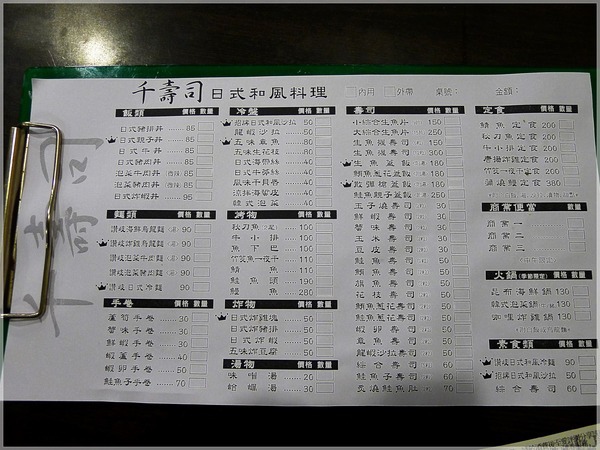 千壽司日式和風料理
內用 外帶 桌號： 金額：
千壽司
飯類 價格 數量
日式豬排丼 85
日式親子丼 85
日式牛丼 85
日式豬肉丼 85
泡菜牛肉丼 85
泡菜豬肉丼 85
日式炸蝦丼 95
麵類 價格 數量
讚岐海鮮烏龍麵 90
讚岐炸雞烏龍麵 90
讚岐泡菜牛肉麵 90
讚岐泡菜豬肉麵 90
讚岐日式冷麵 90
手卷 價格 數量
蘆筍手卷 30
蟹味手卷 30
鮮蝦手卷 30
蝦蘆手卷 40
蝦卵手卷 50
鮭魚子手卷 70
冷盤 價格 數量
招牌日式和風沙拉 50
龍蝦沙拉 50
五味章魚 50
五味生花枝 50
日式海帶絲 50
日式牛蒡絲 50
風味干貝唇 50
涼拌海蜇皮 50
韓式泡菜 50
烤物 價格 數量
秋刀魚 100
牛小排 100
魚下巴 100
竹筴魚一夜干 100
鯖魚 100
鮭魚頭 190
鰻魚 280
炸物 價格 數量
日式炸雞塊 50
日式炸豬排 50
日式炸蝦 50
五味炸豆腐 50
湯物 價格 數量
味噌湯 20
蛤蠣湯 30
壽司 價格 數量
小綜合生魚片 150
大綜合生魚片 250
生魚握壽司 150
生魚握壽司 300
生魚蓋飯 180
鮪魚蔥花蓋飯 180
散彈槍蓋飯 180
鮭魚親子蓋飯 250
玉子燒壽司
鮮蝦壽司
蟹味壽司
玉米壽司
豆皮壽司
鮪魚壽司
旗魚壽司
花枝壽司
鮭魚壽司 50
鮪魚蔥花壽司 50
蝦卵壽司 50
章魚壽司 50
龍蝦沙拉壽司 50
綜合壽司 60
鮭魚子壽司 60
炙燒鮭魚肚 70
定食 價格 數量
鯖魚定食 200
秋刀魚定食 200
唐揚炸雞定食 200
竹筴一夜干定食 200
蒲燒鰻定食 380
商業便當 價格 數量
商業一
商業二
商業三
火鍋(季節限定) 價格 數量
昆布海鮮鍋 130
韓式泡菜鍋 130
咖哩炸雞鍋 130
素食類 價格 數量
讚岐日式和風冷麵 90
招牌日式和風沙拉 50
綜合壽司 60